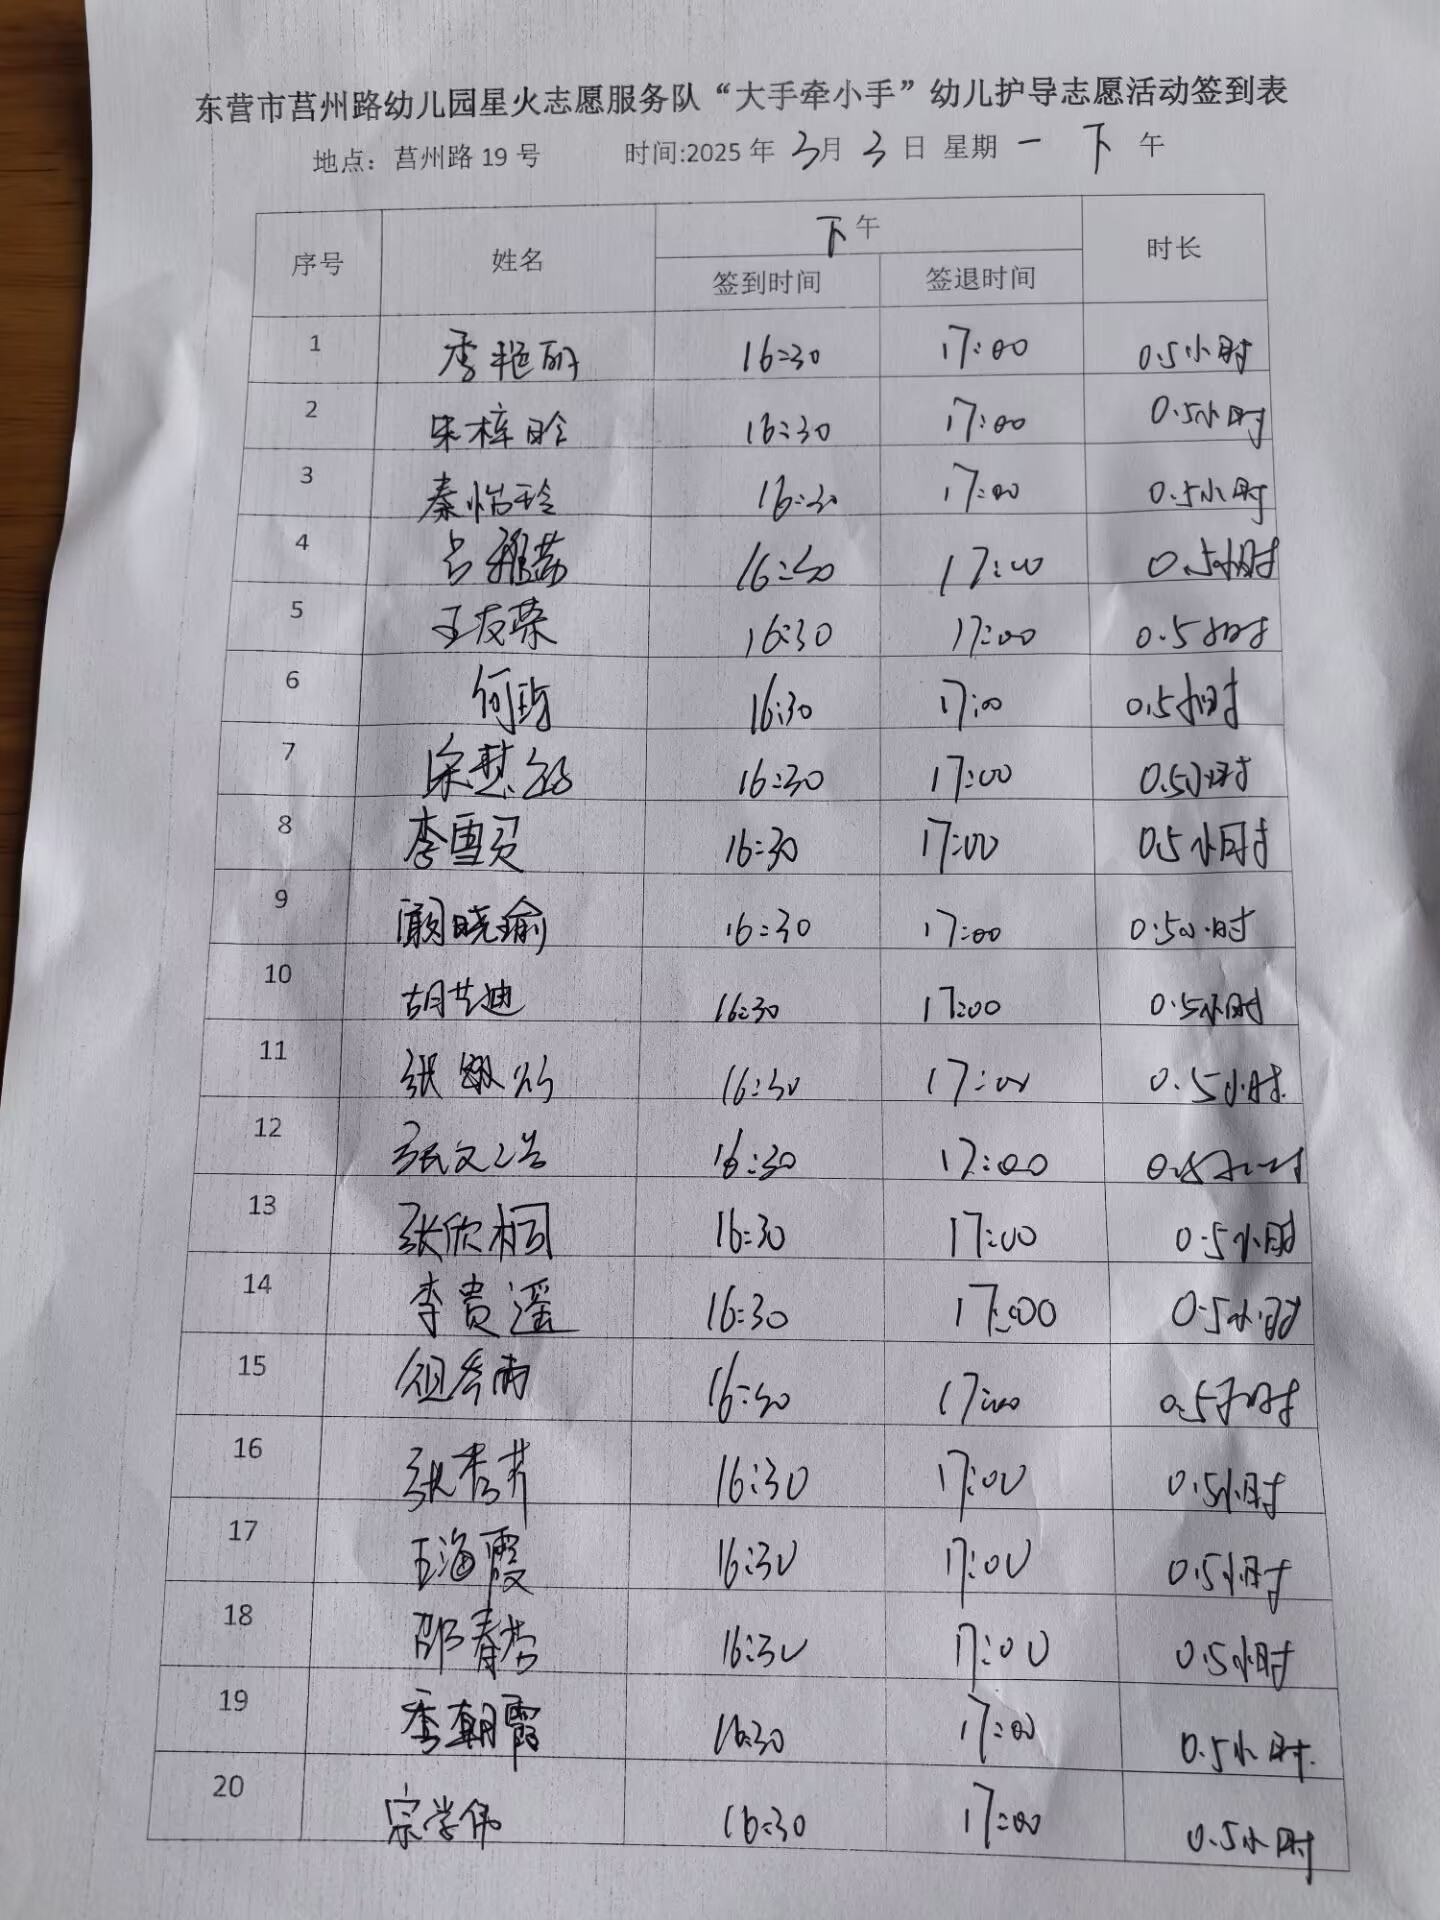 东营市莒州路幼儿园星火志愿服务队“大手牵小手”幼儿护导志愿活动签到表
地点：莒州路 19 号 时间:2025 年 3月 3 日 星期 一 下 午
序号 姓名 下午 时长
签到时间 签退时间
1 季艳丽 16:30 17:00 0.5小时
2 宋梓晗 16:30 17:00 0.5小时
3 秦怡玲 16:30 17:00 0.5小时
4 16:30 17:00 0.5小时
5 王友荣 16:30 17:00 0.5小时
6 何 16:30 17:00 0.5小时
7 徐慧 16:30 17:00 0.5小时
8 李雪 16:30 17:00 0.5小时
9 顾晓瑜 16:30 17:00 0.5小时
10 胡艺迪 16:30 17:00 0.5小时
11 张 16:30 17:00 0.5小时
12 张文 16:30 17:00 0.5小时
13 张欣桐 16:30 17:00 0.5小时
14 李贵遥 16:30 17:00 0.5小时
15 雨 16:30 17:00 0.5小时
16 张秀芹 16:30 17:00 0.5小时
17 王海霞 16:30 17:00 0.5小时
18 邵春芳 16:30 17:00 0.5小时
19 季朝霞 16:30 17:00 0.5小时.
20 宗学伟 16:30 17:00 0.5小时